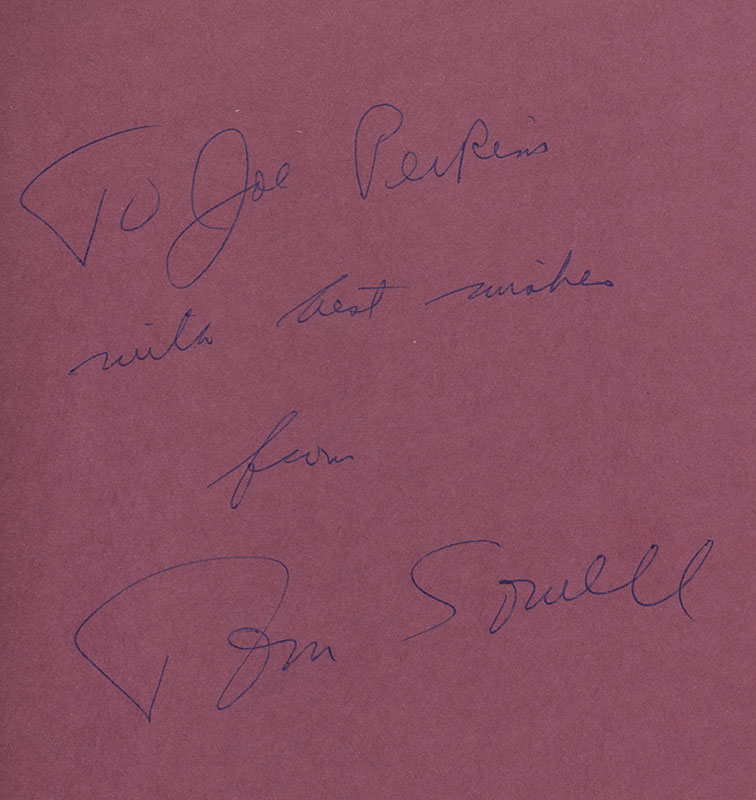 To Joe Perkins
with best wishes
from
Tom Sowell